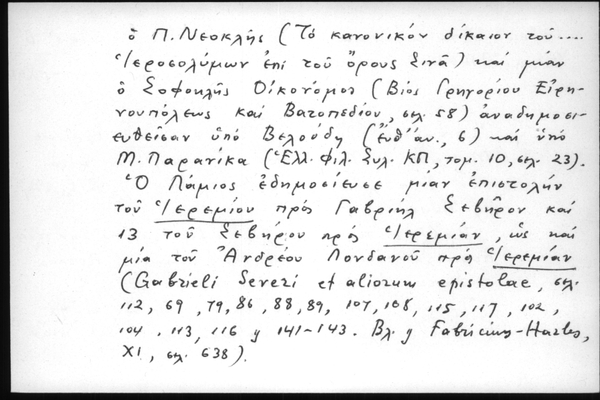 ὁ Π. Νεοκλῆς (Τό κανονικόν δίκαιον τοῦ....
Ἱεροσολύμων ἐπί τοῦ Ὄρους Σινᾶ) καί μίαν
ὁ Σοφοκλῆς Οἰκονόμος (Βίος Γρηγορίου Εἰρη-
νουπόλεως καί Βατοπεδίου, σελ. 58) ἀναδημοσι-
ευθεῖσαν ὑπό Βελούδη (ἔνθ' ἀν., 6) καί ὑπό
Μ. Παρανίκα (Ἑλλ. φιλ. Συλ. ΚΠ, τομ. 10, σελ. 23).
Ὁ Λάμιος ἐδημοσίευσε μίαν ἐπιστολήν
τοῦ Ἱερεμίου πρός Γαβριήλ Σεβῆρον καί
13 τοῦ Σεβήρου πρός Ἱερεμίαν, ὡς καί
μία τοῦ Ἀνδρέου Λονδανοῦ πρός Ἱερεμίαν
(Gabrieli Severi et aliorum epistolae, σελ.
112, 69, 79, 86, 88, 89, 107, 108, 115, 117, 102,
104, 113, 116 γ 141-143. Βλ. γ Fabricius-Harles,
XI, σελ. 638).